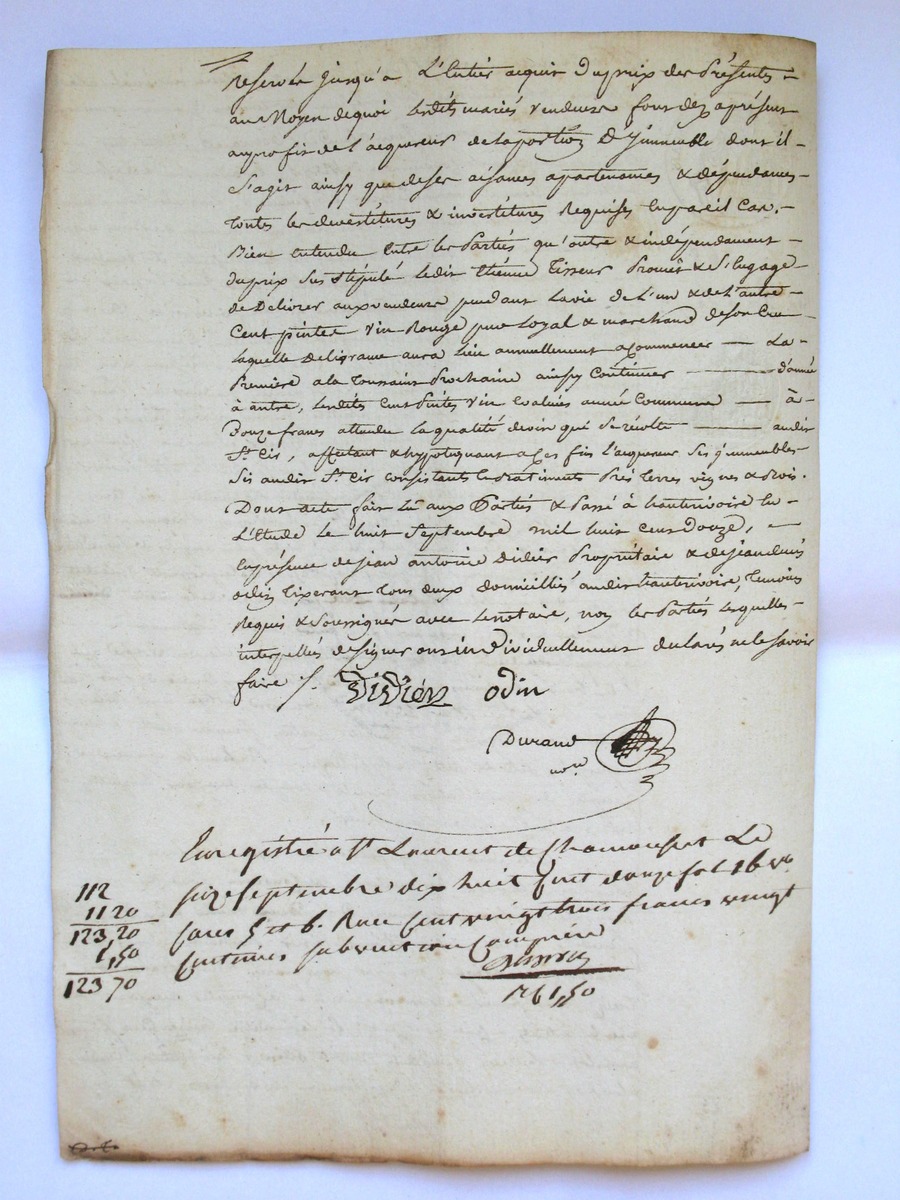 reservée jusqu'a L'Entier acquit Du prix des Présentes -
au Moyen de quoi Lesdits mariés vendeurs font dez aprésent
au profit de L'acquereur de la portion D'Immeuble dont il -
S'agit ainsy que de ses aisances apartenances & dépendances -
toutes les devestitures & investitures Requises En pareil Cas. -
Bien entendu Entre les Partiés qu'outre & indépendament -
du prix Sus Stipulé Ledit Etiénne Tisseur Promêt & S'Engage -
de Delivrer aux vendeurs pendant la vie de L'un & de L'autre -
Cent pintes vin Rouge pur Loyal & marchand de son Cru -
Laquelle Deligrance aura Lieu annuellement a Commencer — La -
Premiere a la Toussaint Prochaine ainsy Continuer — d'année
à autre, Lesdites Cent Pintes vin Evaluées année Commune — à -
Douze francs attendu la qualité de vin qui Se récolte — audit
St. Cir, affectant & hypotequant a Ces fins l'acquereur Ses ymmeubles
Sis audit St. Cir Consistants En batiments Prés Terres vignes & Bois.
Dont acte fait Lû aux Partiés & Passé à hauterivoire En -
L'Etude Le huit Septembre mil huit Cent Douze, -
En présence de Jean antoine Didiér Propriétaire & de Jean
odin Tixerant Tous deux domiciliés audit hauterivoire, Temoins
Requis & Soussignés avec Le Notaire, non les Partiés Lesquelles -
interpellés de Signer ont individuellement déclarés ne le Savoir
faire /.
DiDiér odin
Durand
nore
Enregistré a St Laurent de Chamousset Le
112 seize septembre dix huit Cent douze fol 16 vo
11 20 cases 5 et 6. Reçu Cent vingt trois francs vingt
123,20 Centimes subvention Comprise
,50
123 70
126 1,50